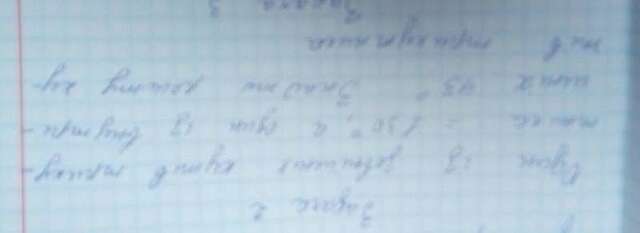 Задача 2
Один із зовнішніх кутів трику-
тника = 130°, а один із внутрі-
шніх 45° Знайти решту ку-
тів трикутника
Задача 3